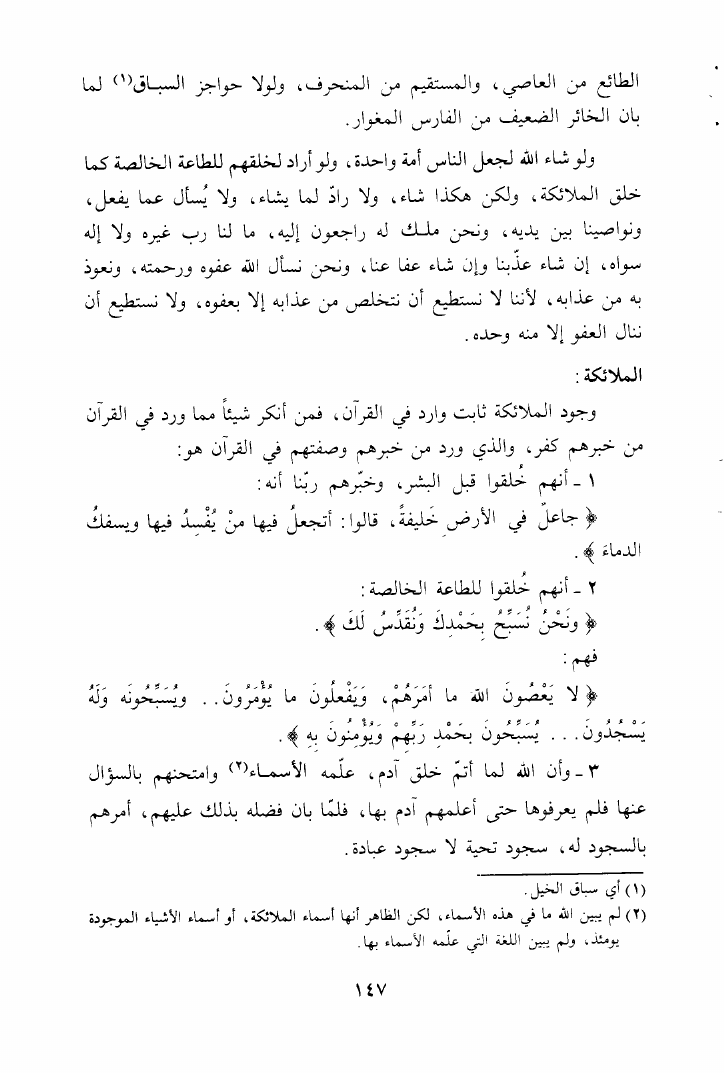 الطائع من العاصي، والمستقيم من المنحرف، ولولا حواجز السباق(١) لما
بان الخائر الضعيف من الفارس المغوار.
ولو شاء الله لجعل الناس أمة واحدة، ولو أراد لخلقهم للطاعة الخالصة كما
خلق الملائكة، ولكن هكذا شاء، ولا رادّ لما يشاء، ولا يُسأل عما يفعل،
ونواصينا بين يديه، ونحن ملك له راجعون إليه، ما لنا رب غيره ولا إله
سواه، إن شاء عذّبنا وإن شاء عفا عنا، ونحن نسأل الله عفوه ورحمته، ونعوذ
به من عذابه، لأننا لا نستطيع أن نتخلص من عذابه إلا بعفوه، ولا نستطيع أن
ننال العفو إلا منه وحده.
الملائكة:
وجود الملائكة ثابت وارد في القرآن، فمن أنكر شيئاً مما ورد في القرآن
من خبرهم كفر، والذي ورد من خبرهم وصفتهم في القرآن هو:
١ - أنهم خُلقوا قبل البشر، وخبّرهم ربّنا أنه:
﴿ جاعلٌ في الأرض خَليفةً، قالوا: أتجعلُ فيها منْ يُفْسِدُ فيها ويسفكُ
الدماءَ ﴾.
٢ - أنهم خُلقوا للطاعة الخالصة:
﴿ ونَحْنُ نُسَبِّحُ بِحَمْدِكَ وَنُقَدِّسُ لَكَ ﴾.
فهم:
﴿ لا يَعْصُونَ اللهَ ما أمَرَهُمْ، وَيَفْعلُونَ ما يُؤْمَرُونَ.. ويُسَبِّحُونَه وَلَهُ
يَسْجُدُونَ... يُسَبِّحُونَ بحَمْدِ رَبِّهِمْ وَيُؤْمِنُونَ بِهِ ﴾.
٣ - وأن الله لما أتمّ خلق آدم، علّمه الأسماء(٢) وامتحنهم بالسؤال
عنها فلم يعرفوها حتى أعلمهم آدم بها، فلمّا بان فضله بذلك عليهم، أمرهم
بالسجود له، سجود تحية لا سجود عبادة.
(١) أي سباق الخيل.
(٢) لم يبين الله ما في هذه الأسماء، لكن الظاهر أنها أسماء الملائكة، أو أسماء الأشياء الموجودة
يومئذ، ولم يبين اللغة التي علّمه الأسماء بها.
١٤٧